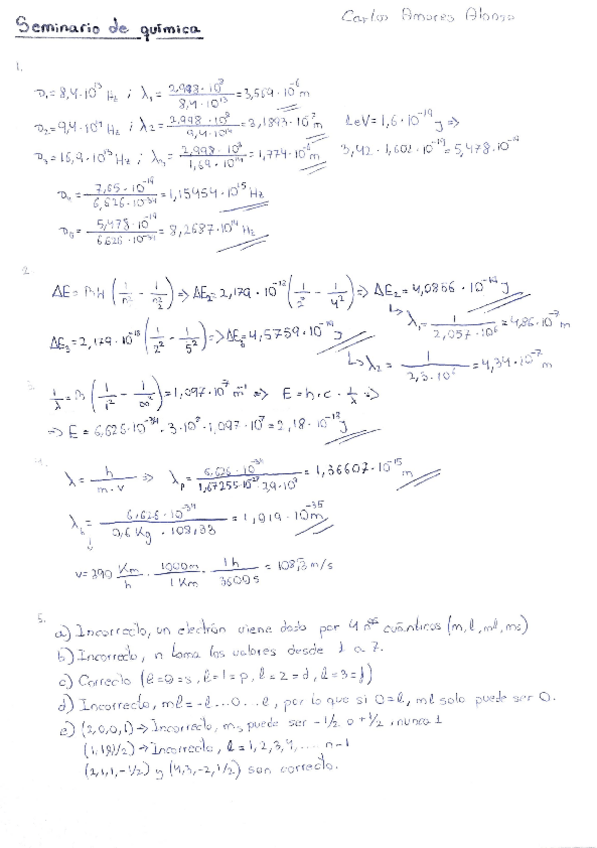 Seminario de química
Carlos Amores Alonso
1.
ν₁=8,4·10¹³ Hz ; λ₁ = 2,998·10⁸ / 8,4·10¹³ = 3,569·10⁻⁶ m
ν₂=9,4·10¹⁴ Hz ; λ₂ = 2,998·10⁸ / 9,4·10¹⁴ = 3,1893·10⁻⁷ m
1eV=1,6·10⁻¹⁹ J =>
ν₃=16,9·10¹³ Hz ; λ₃ = 2,998·10⁸ / 1,69·10¹⁴ = 1,774·10⁻⁶ m
3,42·1,602·10⁻¹⁹=5,478·10⁻¹⁹
= 7,65·10⁻¹⁹ / 6,626·10⁻³⁴ = 1,15454·10¹⁵ Hz
= 5,478·10⁻¹⁹ / 6,626·10⁻³⁴ = 8,2687·10¹⁴ Hz
2.
ΔE = RH (1/n² - 1/n₂²) => ΔE₂ = 2,179·10⁻¹⁸ (1/2² - 1/4²) => ΔE₂ = 4,0856·10⁻¹⁹ J
λ₁ = 1 / 2,057·10⁶ = 4,86·10⁻⁷ m
ΔE₃ = 2,179·10⁻¹⁸ (1/2² - 1/5²) => ΔE₃ = 4,5759·10⁻¹⁹ J
λ₂ = 1 / 2,3·10⁶ = 4,34·10⁻⁷ m
3.
1/λ = R (1/1² - 1/∞²) = 1,097·10⁷ m⁻¹ => E = h·c·1/λ =>
=> E = 6,626·10⁻³⁴·3·10⁸·1,097·10⁷ = 2,18·10⁻¹⁸ J
4.
λ = h / m·v => λp = 6,626·10⁻³⁴ / 1,67255·10⁻²⁷·2,9·10⁸ = 1,36607·10⁻¹⁵ m
= 6,626·10⁻³⁴ / 0,6 Kg·108,33 = 1,019·10⁻³⁵ m
v = 390 Km/h · 1000m/1Km · 1h/3600s = 108,3 m/s
5.
a) Incorrecto, un electrón viene dado por 4 nºs cuánticos (m, l, ml, ms)
b) Incorrecto, n toma los valores desde 1 a 7.
c) Correcto (l=0=s, l=1=p, l=2=d, l=3=f)
d) Incorrecto, ml=-l...0...l, por lo que si 0=l, ml solo puede ser 0.
e) (2,0,0,1) → Incorrecto, ms puede ser -1/2 o +1/2, nunca 1
→ Incorrecto, l = 1, 2, 3, 4, .... n-1
(2,1,1,-1/2) y (4,3,-2,1/2) son correcto.